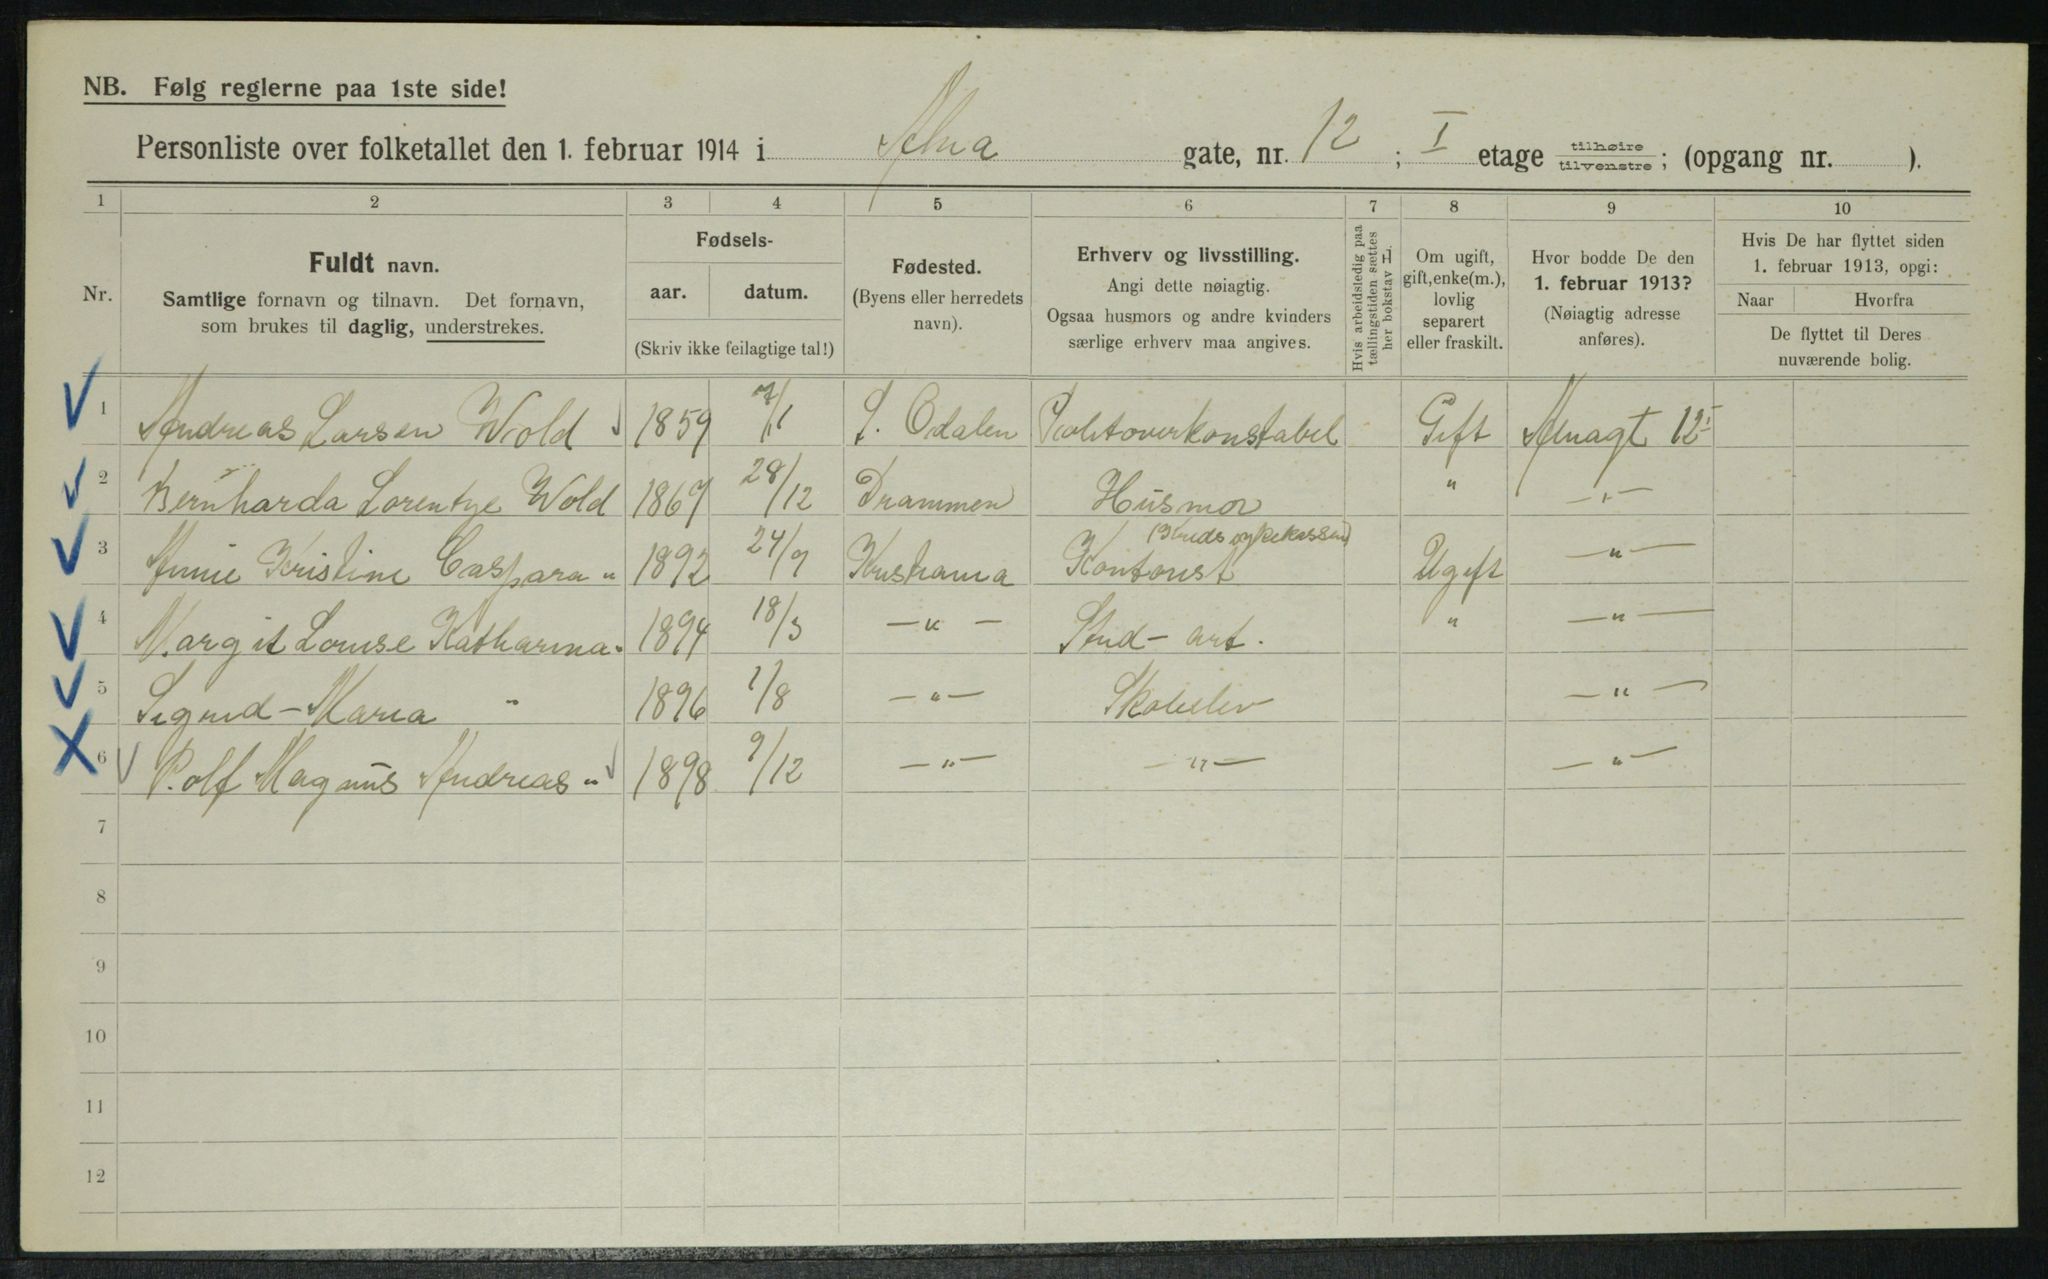 NB. Følg reglerne paa 1ste side!
Personliste over folketallet den 1. februar 1914 i Alna gate, nr. 12 ; I etage tilhøire tilvenstre ; (opgang nr. ).
1 2 3 4 5 6 7 8 9 10
Nr.
Fuldt navn.
Samtlige fornavn og tilnavn. Det fornavn,
som brukes til daglig, understrekes.
Fødsels-
aar. datum.
(Skriv ikke feilagtige tal!)
Fødested.
(Byens eller herredets
navn).
Erhverv og livsstilling.
Angi dette nøiagtig.
Ogsaa husmors og andre kvinders
særlige erhverv maa angives.
Hvis arbeidsledig paa
tællingstiden sættes
her bokstav L.
Om ugift,
gift, enke(m.),
lovlig
separert
eller fraskilt.
Hvor bodde De den
1. februar 1913?
(Nøiagtig adresse
anføres).
Hvis De har flyttet siden
1. februar 1913, opgi:
Naar Hvorfra
De flyttet til Deres
nuværende bolig.
1 Andreas Larsen Wold 1859 7/1 S. Odalen Politoverkonstabel Gift Alnagt 12 I
2 Bernharda Lorentze Wold 1867 28/12 Drammen Husmor " — " —
3 Annie Kristine Caspara " 1892 24/9 Kristiania Kontorist Ugift — " —
4 Margit Louise Katharina " 1894 18/3 — " — Stud - art. " — " —
5 Sigrid - Maria " 1896 1/8 — " — Skoleelev — " —
6 Rolf Magnus Andreas " 1898 9/12 — " — — " — — " —
7
8
9
10
11
12